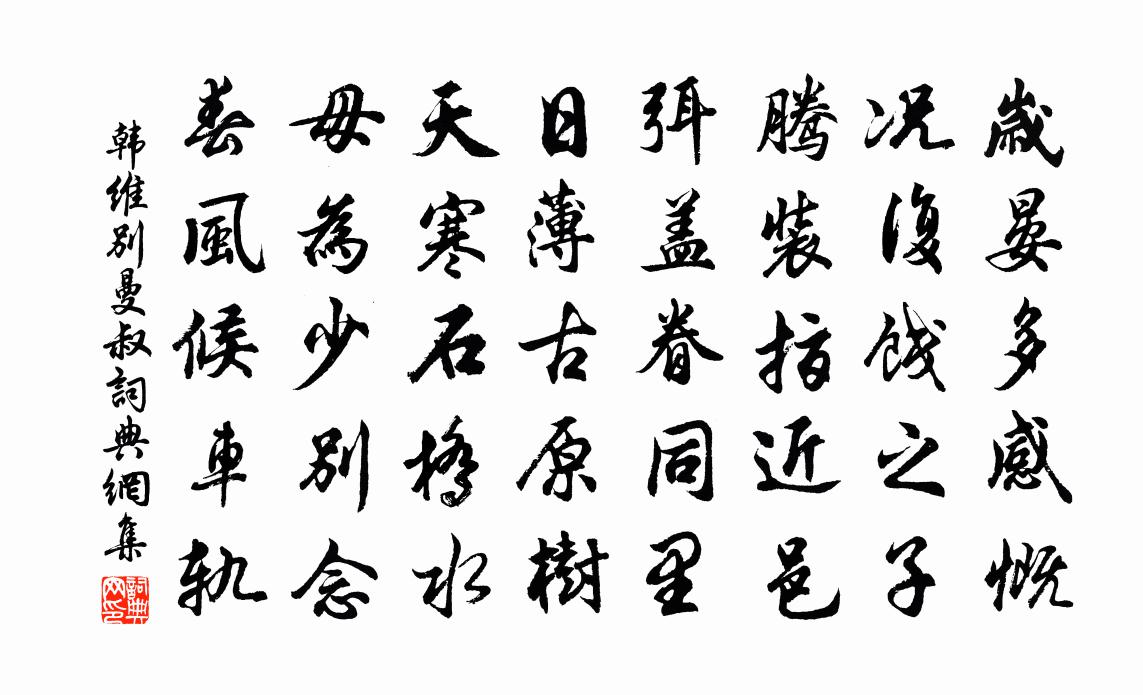 歲晏多感慨
況復餞之子
騰裝指近邑
弭蓋眷同里
日薄古原樹
天寒石橋水
毋為少別念
春風候車軌
韩維别曼叔詞典網集
詞典网印